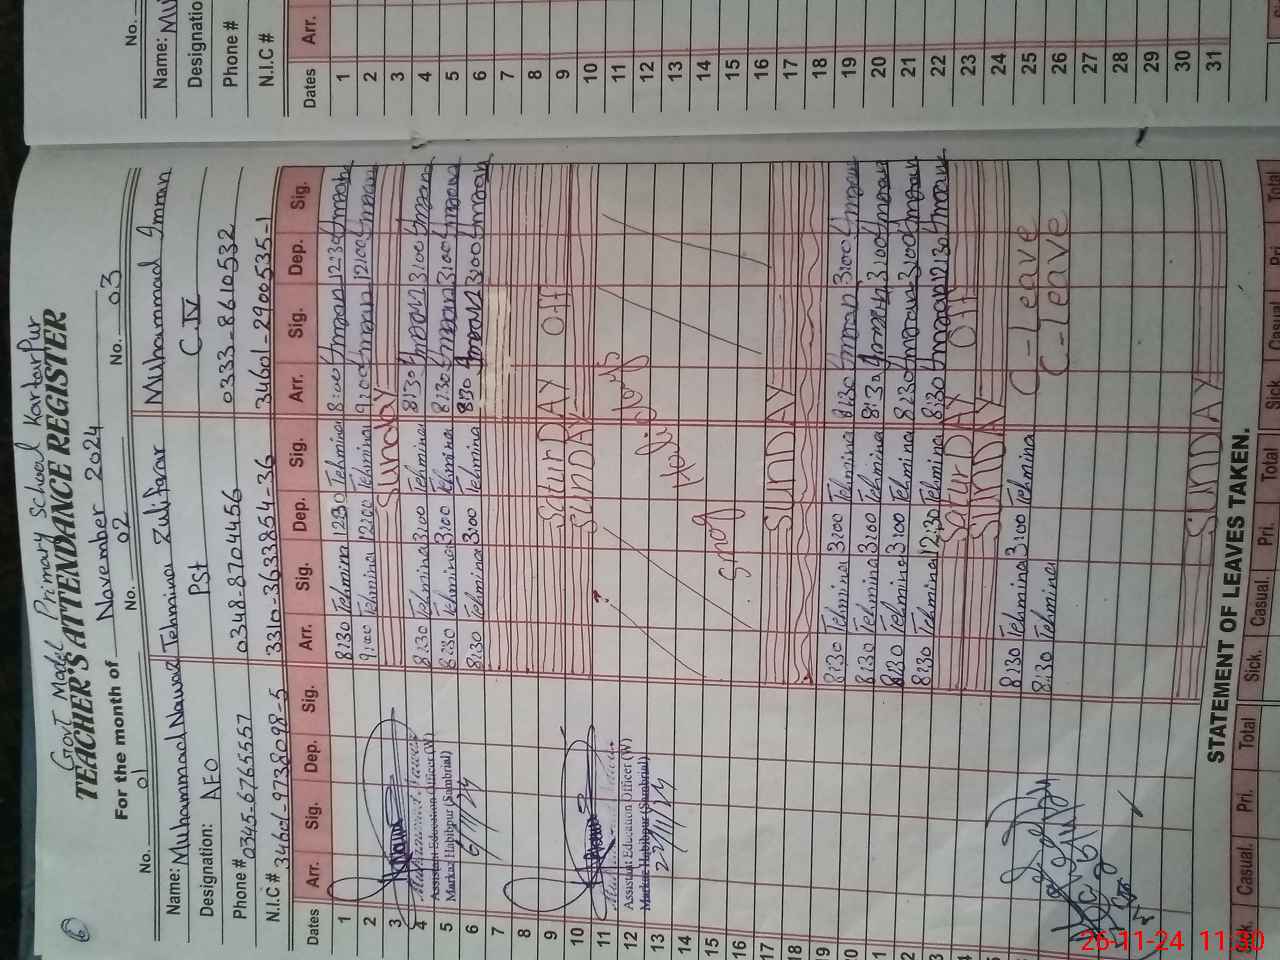 6
Govt Model Primary School Kartarpur
TEACHER'S ATTENDANCE REGISTER
For the month of November 2024
No. 01 No. 02 No. 03
Name: Muhammad Nawaz Tehmina Zulifqar Muhammad Imran
Designation: AEO PST C.IV
Phone # 0345-6765557 0348-8704456 0333-8610532
N.I.C # 34601-9738098-5 3310-3633854-36 34601-2900535-1
Dates Arr. Sig. Dep. Sig. Arr. Sig. Dep. Sig. Arr. Sig. Dep. Sig.
1 8:30 Tehmina 12:30 Tehmina 8:00 Imran 12:30 Imran
2 9:00 Tehmina 12:00 Tehmina 9:00 Imran 12:00 Imran
3 Sunday
4 8:30 Tehmina 3:00 Tehmina 8:30 Imran 3:00 Imran
5 8:30 Tehmina 3:00 Tehmina 8:30 Imran 3:00 Imran
6 8:30 Tehmina 3:00 Tehmina 8:30 Imran 3:00 Imran
Assistant Education Officer (W)
Markaz Habibpur (Sambrial)
6/11/24
7
8
9 SaturDAY Off
10 SUNDAY
11
12
13
14
Assistant Education Officer (W)
Markaz Habibpur (Sambrial)
22/11/24
Smog Holidays
15
16
17 SUNDAY
18
19 8:30 Tehmina 3:00 Tehmina 8:30 Imran 3:00 Imran
20 8:30 Tehmina 3:00 Tehmina 8:30 Imran 3:00 Imran
21 8:30 Tehmina 3:00 Tehmina 8:30 Imran 3:00 Imran
22 8:30 Tehmina 12:30 Tehmina 8:30 Imran 12:30 Imran
23 SaturDAY Off
24 SUNDAY
25 8:30 Tehmina 3:00 Tehmina C-Leave
26 8:30 Tehmina C-Leave
SUNDAY
STATEMENT OF LEAVES TAKEN.
Sick. Casual. Pri. Total Sick. Casual. Pri. Total Sick Casual Pri Total
No.
Name: Mu
Designatio
Phone #
N.I.C #
Dates Arr.
1
2
3
4
5
6
7
8
9
10
11
12
13
14
15
16
17
18
19
20
21
22
23
24
25
26
27
28
29
30
31
26-11-24 11:30